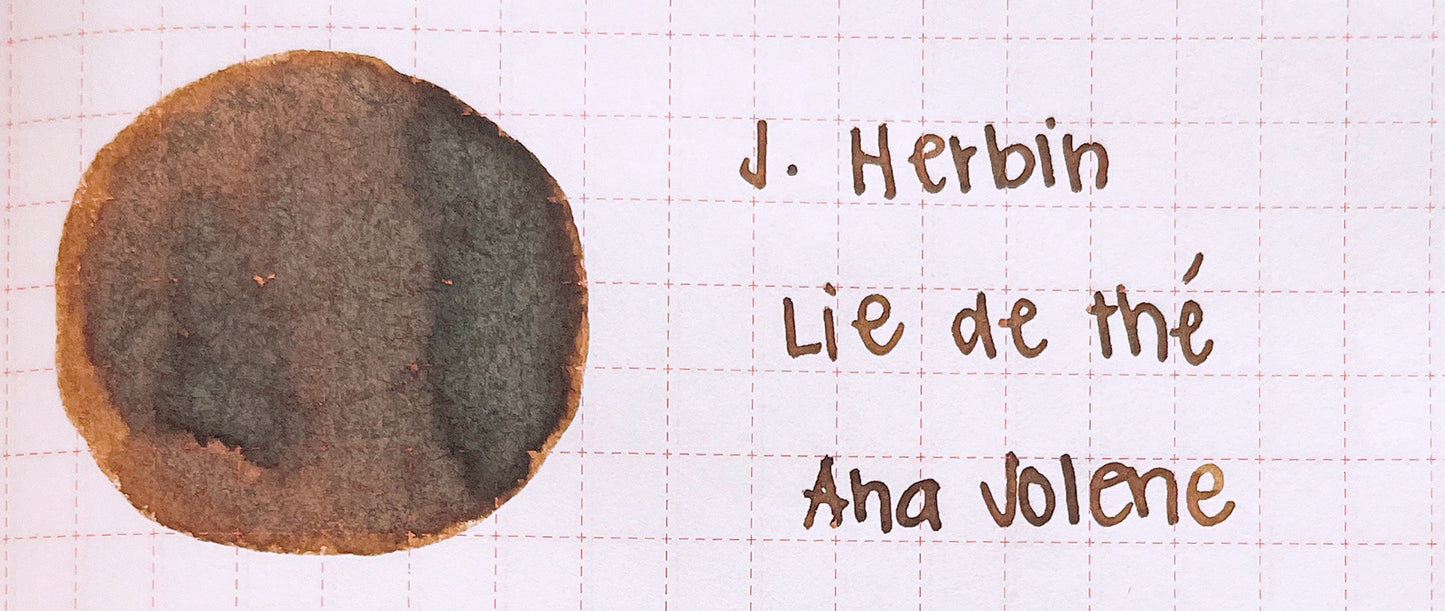 J. Herbin
Lie de thé
Ana Jolene